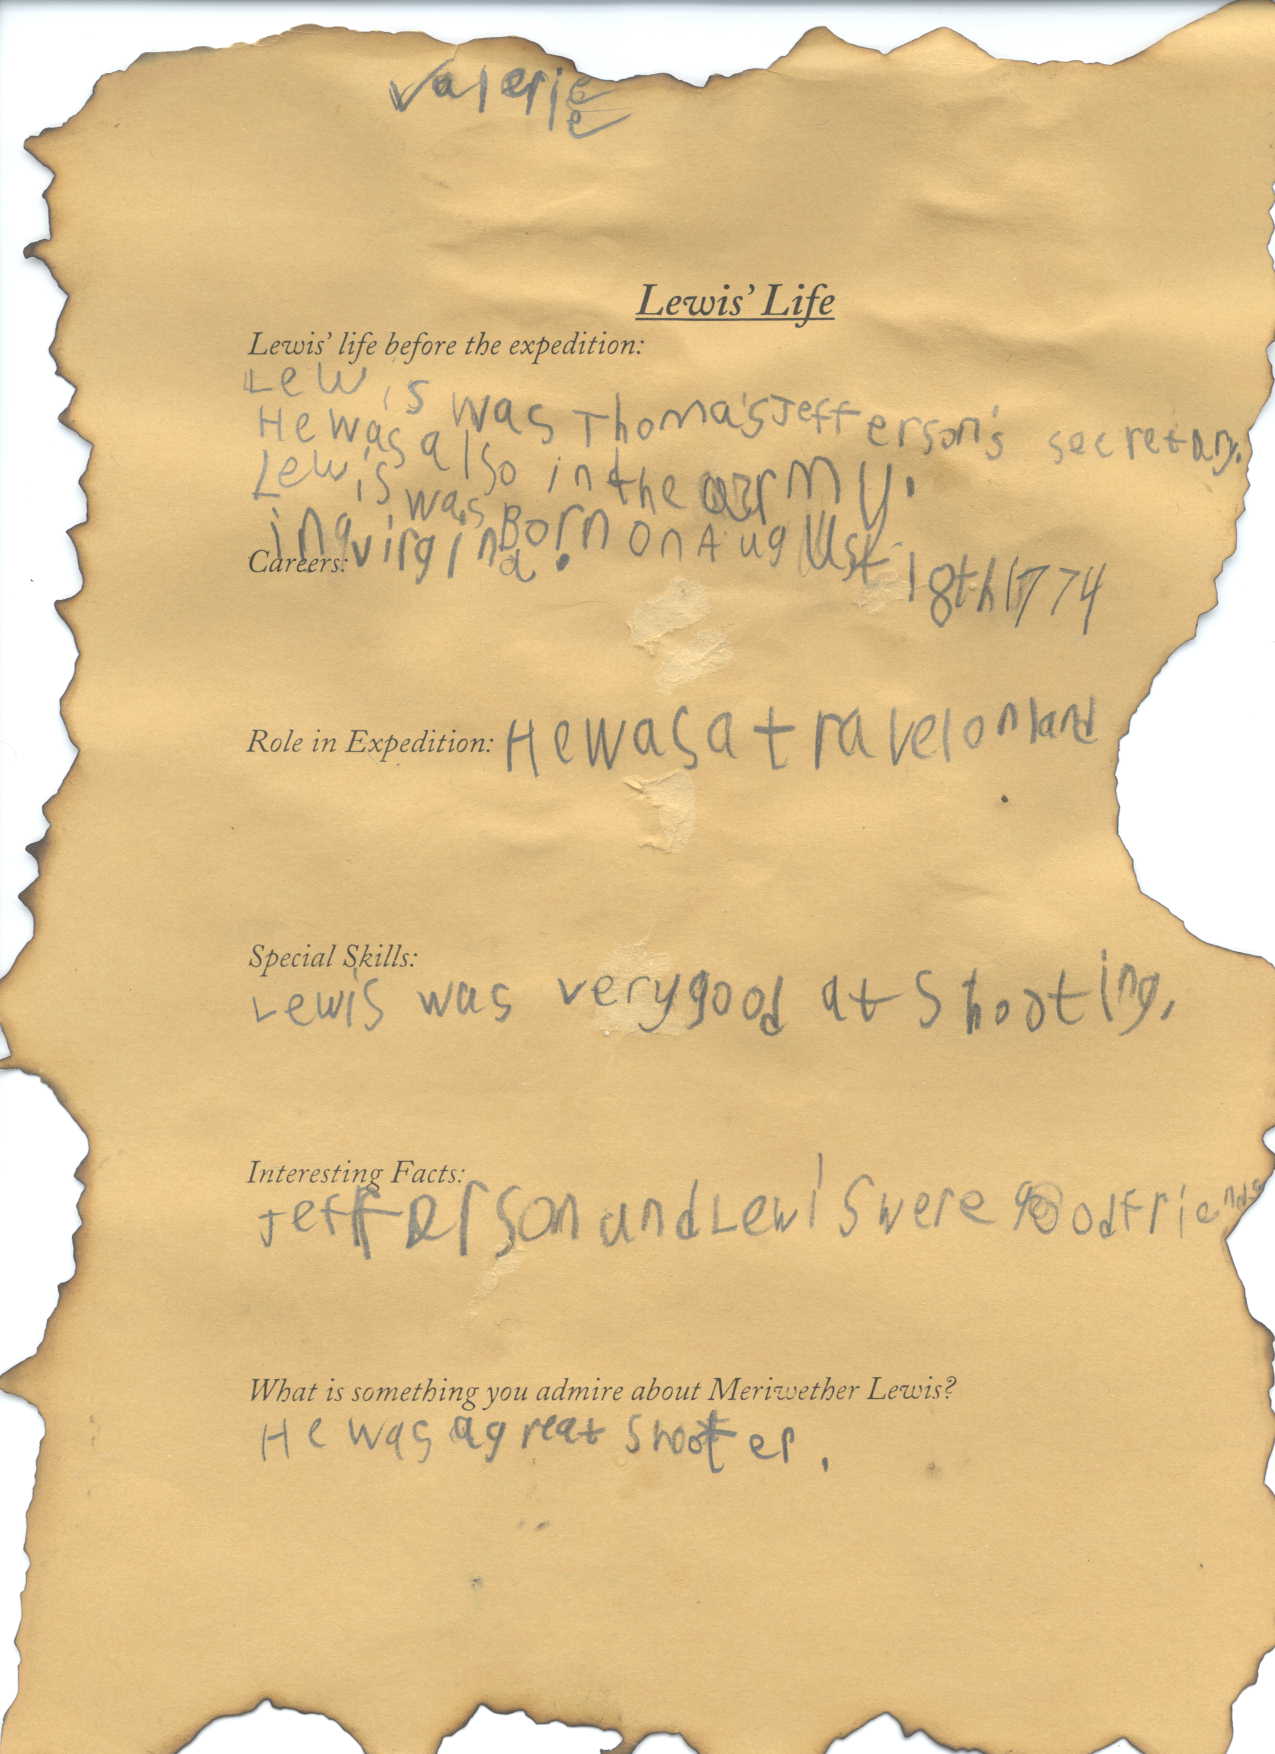 Valerie
Lewis' Life
Lewis' life before the expedition:
Lewis was Thoma'sJefferson's secretary.
He was also in the army.
Lewis was Born on August 18th 1774
in virgina.
Careers:
Role in Expedition: He was a travel on land
Special Skills:
Lewis was very good at shooting,
Interesting Facts:
Jefferson and Lewis were good friends
What is something you admire about Meriwether Lewis?
He was a great shooter.